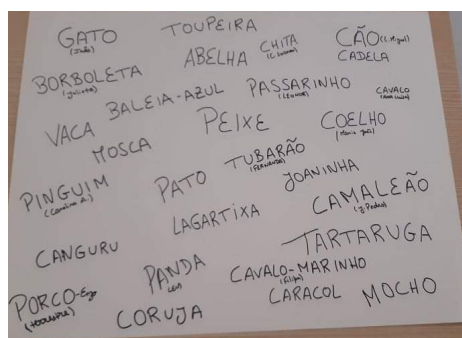 GATO
(João)
TOUPEIRA
ABELHA
CHITA
CÃO (L. Miguel)
CADELA
BORBOLETA
(Julieta)
BALEIA-AZUL
PASSARINHO
(LEONOR)
CAVALO
VACA
MOSCA
PEIXE
COELHO
(Maria José)
PINGUIM
(Carolina A.)
PATO
TUBARÃO
(FERNANDA)
JOANINHA
CAMALEÃO
(J. Pedro)
LAGARTIXA
CANGURU
TARTARUGA
PANDA
CAVALO-MARINHO
(Filipa)
PORCO-
CORUJA
CARACOL
MOCHO